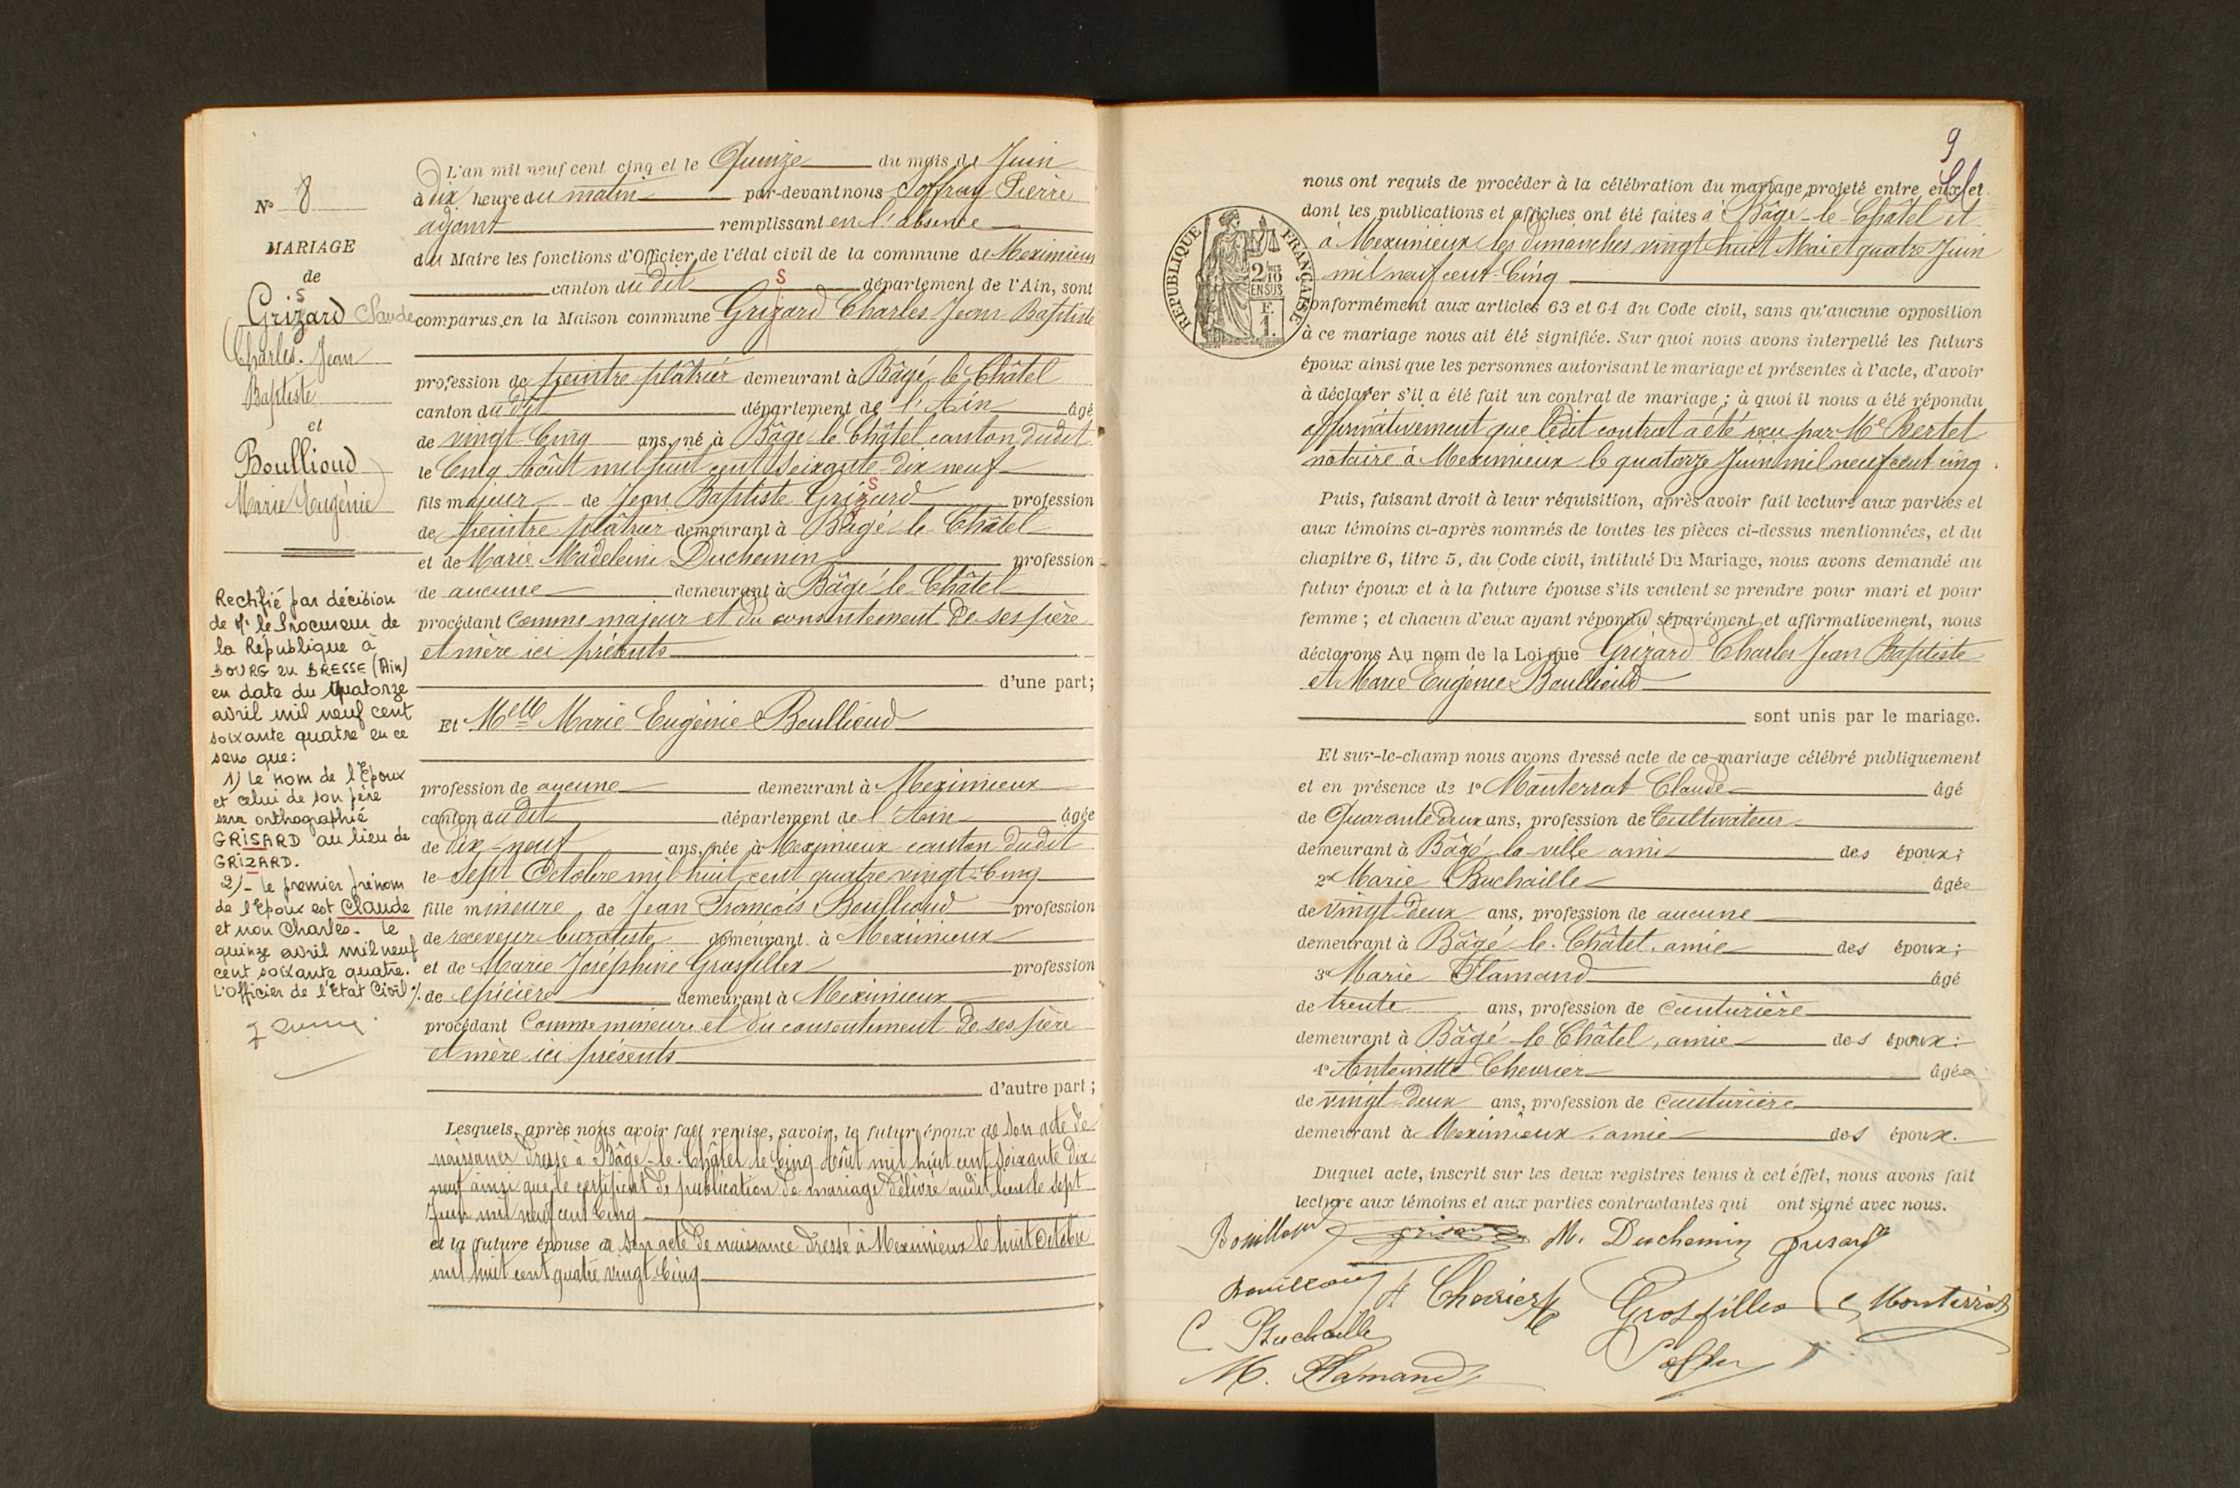 N° 8
MARIAGE
de
S
Grizard Claude
(Charles. Jean
Baptiste
et
Boullioud
Marie Eugénie
Rectifié par décision
de Mr le Procureur de
la République à
BOURG en BRESSE (Ain)
en date du Quatorze
avril mil neuf cent
soixante quatre en ce
sens que:
1) le nom de l'Epoux
et celui de son père
sera orthographié
GRISARD au lieu de
GRIZARD.
2)- le premier prénom
de l'Epoux est Claude
et non Charles. le
quinze avril mil neuf
cent soixante quatre.
L'Officier de l'Etat Civil
L'an mil neuf cent cinq et le Quinze du mois de Juin
à dix heure du matin par-devant nous Joffray Pierre
adjoint remplissant en l'absence
du Maire les fonctions d'Officier de l'état civil de la commune de Meximieux
canton dudit département de l'Ain, sont
S
comparus en la Maison commune Grizard Charles Jean Baptiste
profession de peintre plâtrier demeurant à Bâgé le Châtel
canton dudit département de l'Ain âgé
de vingt Cinq ans, né à Bâgé le Châtel canton dudit
le Cinq Août mil huit cent soixante dix neuf
S
fils majeur de Jean Baptiste Grizard profession
de peintre plâtrier demeurant à Bâgé le Châtel
et de Marie Madeleine Duchemin profession
de aucune demeurant à Bâgé le Châtel
procédant comme majeur et du consentement de ses père
et mère ici présents
d'une part;
Et Melle Marie Eugénie Boullioud
profession de aucune demeurant à Meximieux
canton dudit département de l'Ain âgée
de dix-neuf ans, née à Meximieux canton dudit
le sept Octobre mil huit cent quatre vingt-Cinq
fille mineure de Jean François Boullioud profession
de receveur buraliste demeurant à Meximieux
et de Marie Joséphine Grosfillex profession
de épicière demeurant à Meximieux
procédant comme mineure et du consentement de ses père
et mère ici présents
d'autre part;
Lesquels, après nous avoir fait remise, savoir, le futur époux de son acte de
naissance dressé à Bâgé-le-Châtel le Cinq Août mil huit cent soixante dix
neuf ainsi que le certificat de publication de mariage délivré audit lieu le sept
Juin mil neuf cent Cinq
et la future épouse de son acte de naissance dressé à Meximieux le huit Octobre
mil huit cent quatre vingt-Cinq
9
RÉPUBLIQUE FRANÇAISE
2/10
EN SUS
F.
1.
nous ont requis de procéder à la célébration du mariage projeté entre eux et
dont les publications et affiches ont été faites à Bâgé-le-Châtel et
à Meximieux les dimanches vingt huit Mai et quatre Juin
mil neuf cent-Cinq
conformément aux articles 63 et 64 du Code civil, sans qu'aucune opposition
à ce mariage nous ait été signifiée. Sur quoi nous avons interpellé les futurs
époux ainsi que les personnes autorisant le mariage et présentes à l'acte, d'avoir
à déclarer s'il a été fait un contrat de mariage; à quoi il nous a été répondu
affirmativement que ledit contrat a été reçu par Me Bertet
notaire à Meximieux le quatorze Juin mil neuf cent cinq.
Puis, faisant droit à leur réquisition, après avoir fait lecture aux parties et
aux témoins ci-après nommés de toutes les pièces ci-dessus mentionnées, et du
chapitre 6, titre 5, du Code civil, intitulé Du Mariage, nous avons demandé au
futur époux et à la future épouse s'ils veulent se prendre pour mari et pour
femme; et chacun d'eux ayant répondu séparément et affirmativement, nous
déclarons Au nom de la Loi que Grizard Charles Jean Baptiste
et Marie Eugénie Boullioud
sont unis par le mariage.
Et sur-le-champ nous avons dressé acte de ce mariage célébré publiquement
et en présence de 1° Monterrat Claude âgé
de Quarante deux ans, profession de Cultivateur
demeurant à Bâgé-la-ville ami des époux;
2° Marie Buchaille âgée
de vingt-deux ans, profession de aucune
demeurant à Bâgé-le-Châtel, amie des époux;
3° Marie Flamand âgé
de trente ans, profession de couturière
demeurant à Bâgé-le Châtel, amie des époux;
4° Antoinette Chevrier âgée
de vingt-deux ans, profession de couturière
demeurant à Meximieux, amie des époux.
Duquel acte, inscrit sur les deux registres tenus à cet effet, nous avons fait
lecture aux témoins et aux parties contractantes qui ont signé avec nous.
Boullioud grisard M. Duchemin grisard
Boullioud A Chevrier Grosfillex C Monterrat
C Buchaille
M. Flamand